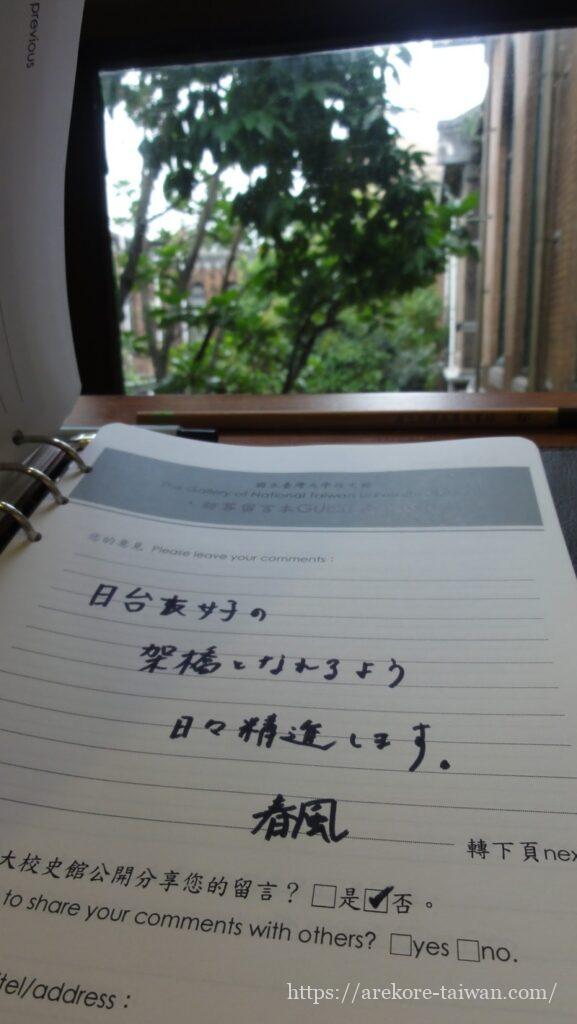 previous
國立臺灣大學校史館
The Gallery of National Taiwan University History
您的意見 Please leave your comments：
日台友好の
架橋となれるよう
日々精進します。
春風
轉下頁nex
大校史館公開分享您的留言？□是☑否。
to share your comments with others? □yes □no.
tel/address：
https://arekore-taiwan.com/